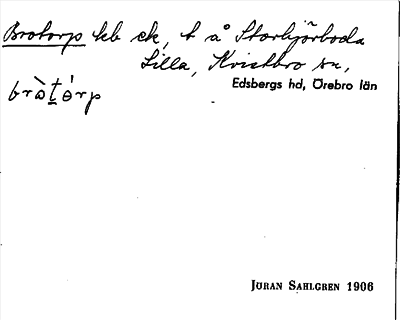 Brotorp kb ek, t å Storbjörboda
Lilla, Kvistbro sn,
Edsbergs hd, Örebro län
bròtórp
JÖRAN SAHLGREN 1906